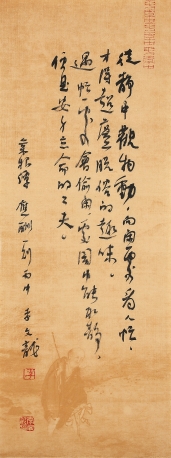 從靜中觀物動，向閒處看人忙，
才得超塵脫俗的趣味。
遇忙處會偷閒，處鬧中能取靜，
便是安身立命的工夫。
菜根譚 應酬一則 丙申 李文龍